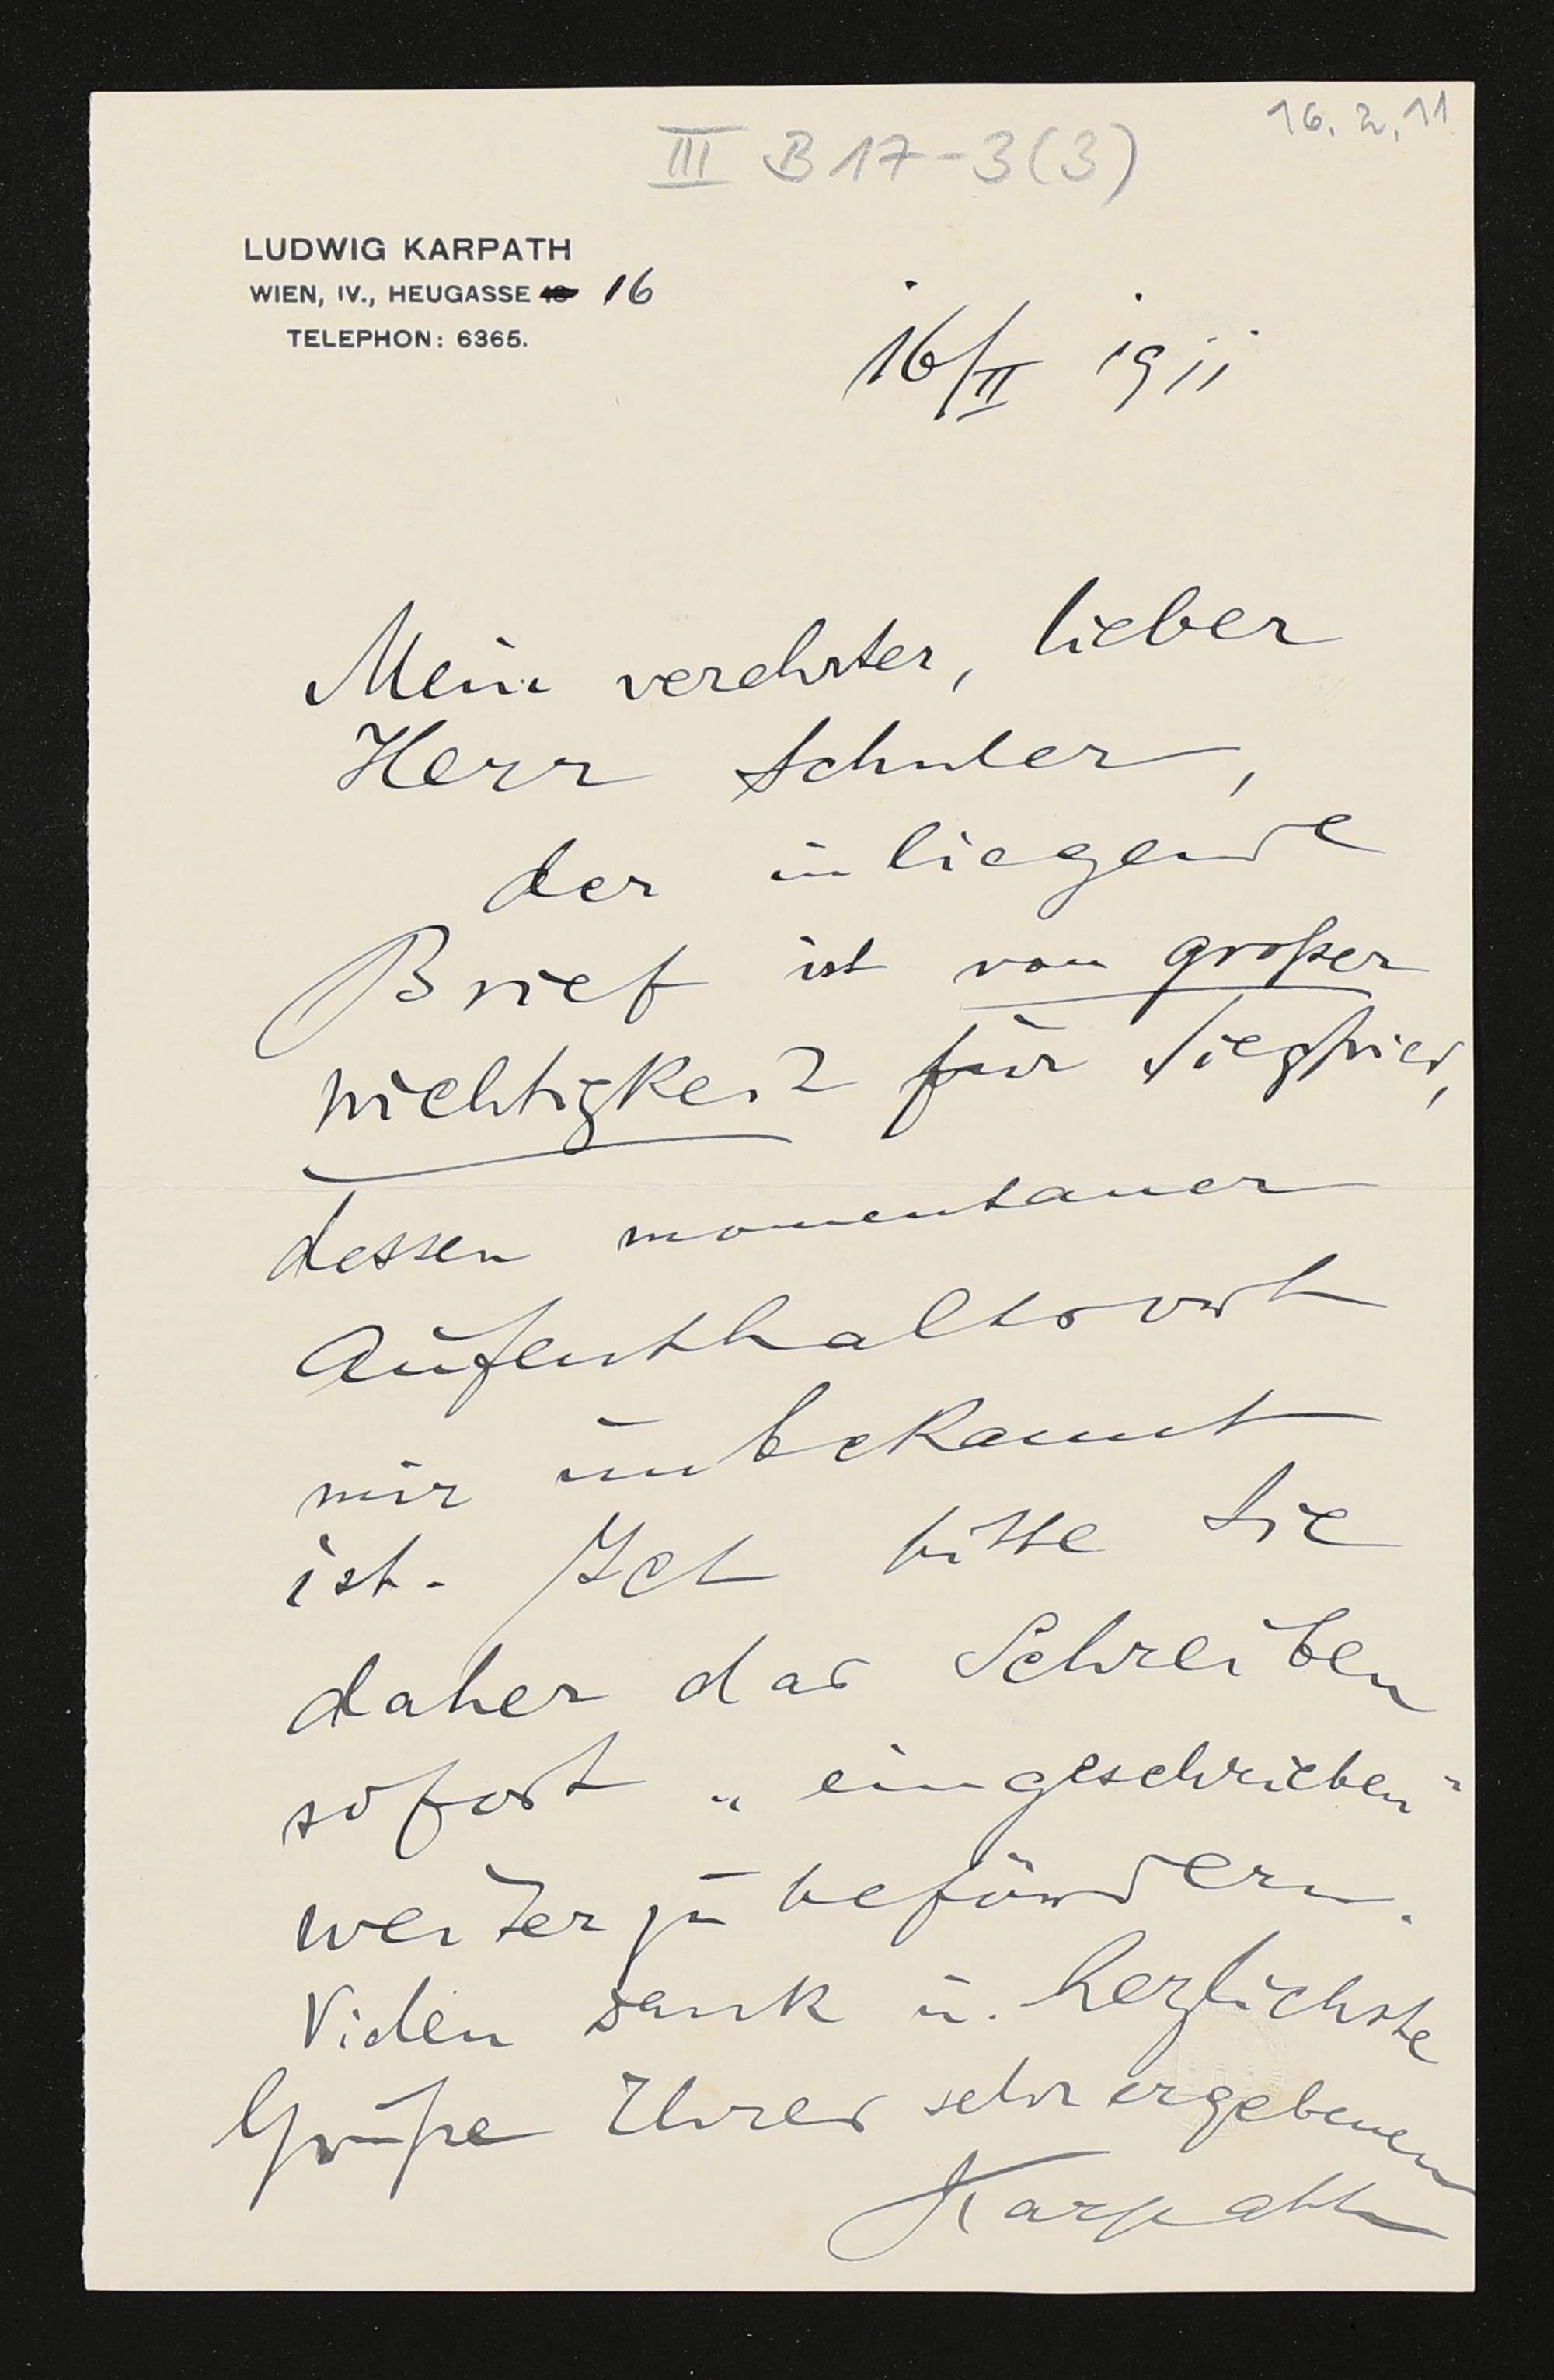 16.2.11
III B 17-3(3)
LUDWIG KARPATH
WIEN, IV., HEUGASSE 16
TELEPHON: 6365.
16/II 1911
Mein verehrter, lieber
Herr Schuler,
der inliegende
Brief ist von großer
Wichtigkeit für Siegfried,
dessen momentaner
Aufenthaltsort
mir unbekannt
ist. Ich bitte Sie
daher das Schreiben
sofort „eingeschrieben“
weiterzubefördern.
Vielen Dank u. herzlichste
Grüße Ihres sehr ergebenen
Karpath